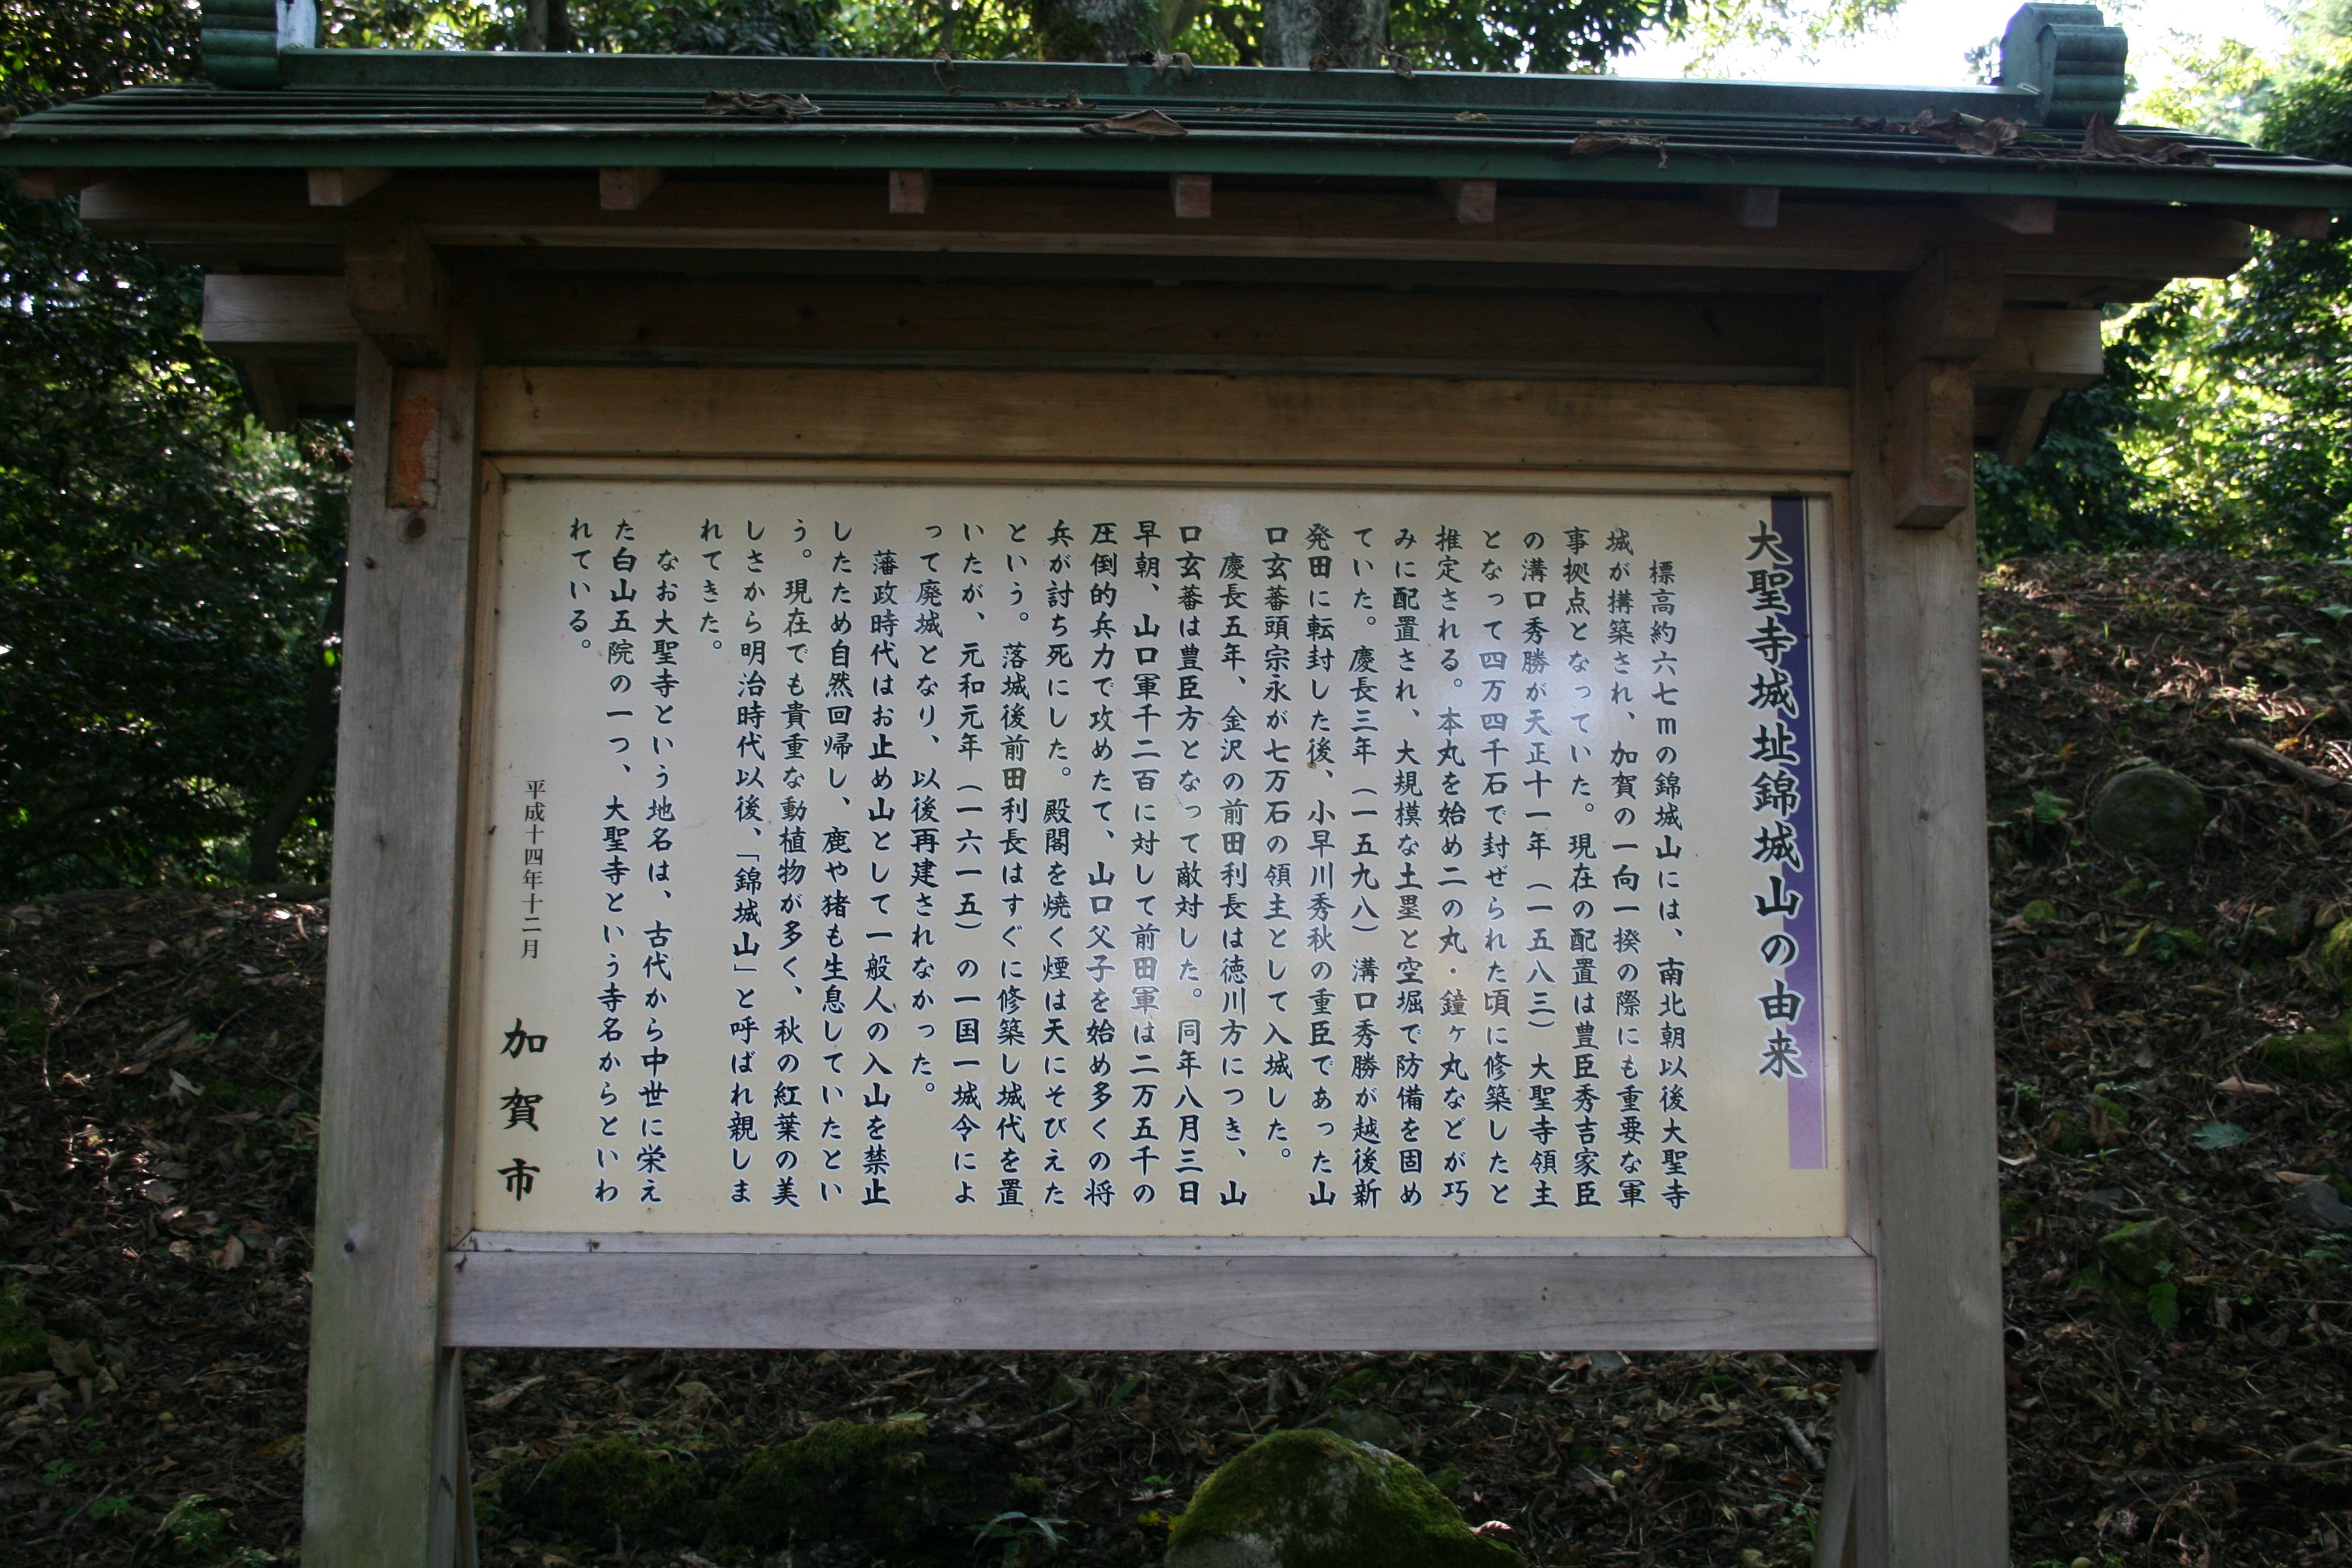 大聖寺城址錦城山の由来
標高約六七ｍの錦城山には、南北朝以後大聖寺
城が構築され、加賀の一向一揆の際にも重要な軍
事拠点となっていた。現在の配置は豊臣秀吉家臣
の溝口秀勝が天正十一年（一五八三）大聖寺領主
となって四万四千石で封ぜられた頃に修築したと
推定される。本丸を始め二の丸・鐘ヶ丸などが巧
みに配置され、大規模な土塁と空堀で防備を固め
ていた。慶長三年（一五九八）溝口秀勝が越後新
発田に転封した後、小早川秀秋の重臣であった山
口玄蕃頭宗永が七万石の領主として入城した。
慶長五年、金沢の前田利長は徳川方につき、山
口玄蕃は豊臣方となって敵対した。同年八月三日
早朝、山口軍千二百に対して前田軍は二万五千の
圧倒的兵力で攻めたて、山口父子を始め多くの将
兵が討ち死にした。殿閣を焼く煙は天にそびえた
という。落城後前田利長はすぐに修築し城代を置
いたが、元和元年（一六一五）の一国一城令によ
って廃城となり、以後再建されなかった。
藩政時代はお止め山として一般人の入山を禁止
したため自然回帰し、鹿や猪も生息していたとい
う。現在でも貴重な動植物が多く、秋の紅葉の美
しさから明治時代以後、「錦城山」と呼ばれ親しま
れてきた。
なお大聖寺という地名は、古代から中世に栄え
た白山五院の一つ、大聖寺という寺名からといわ
れている。
平成十四年十二月
加賀市